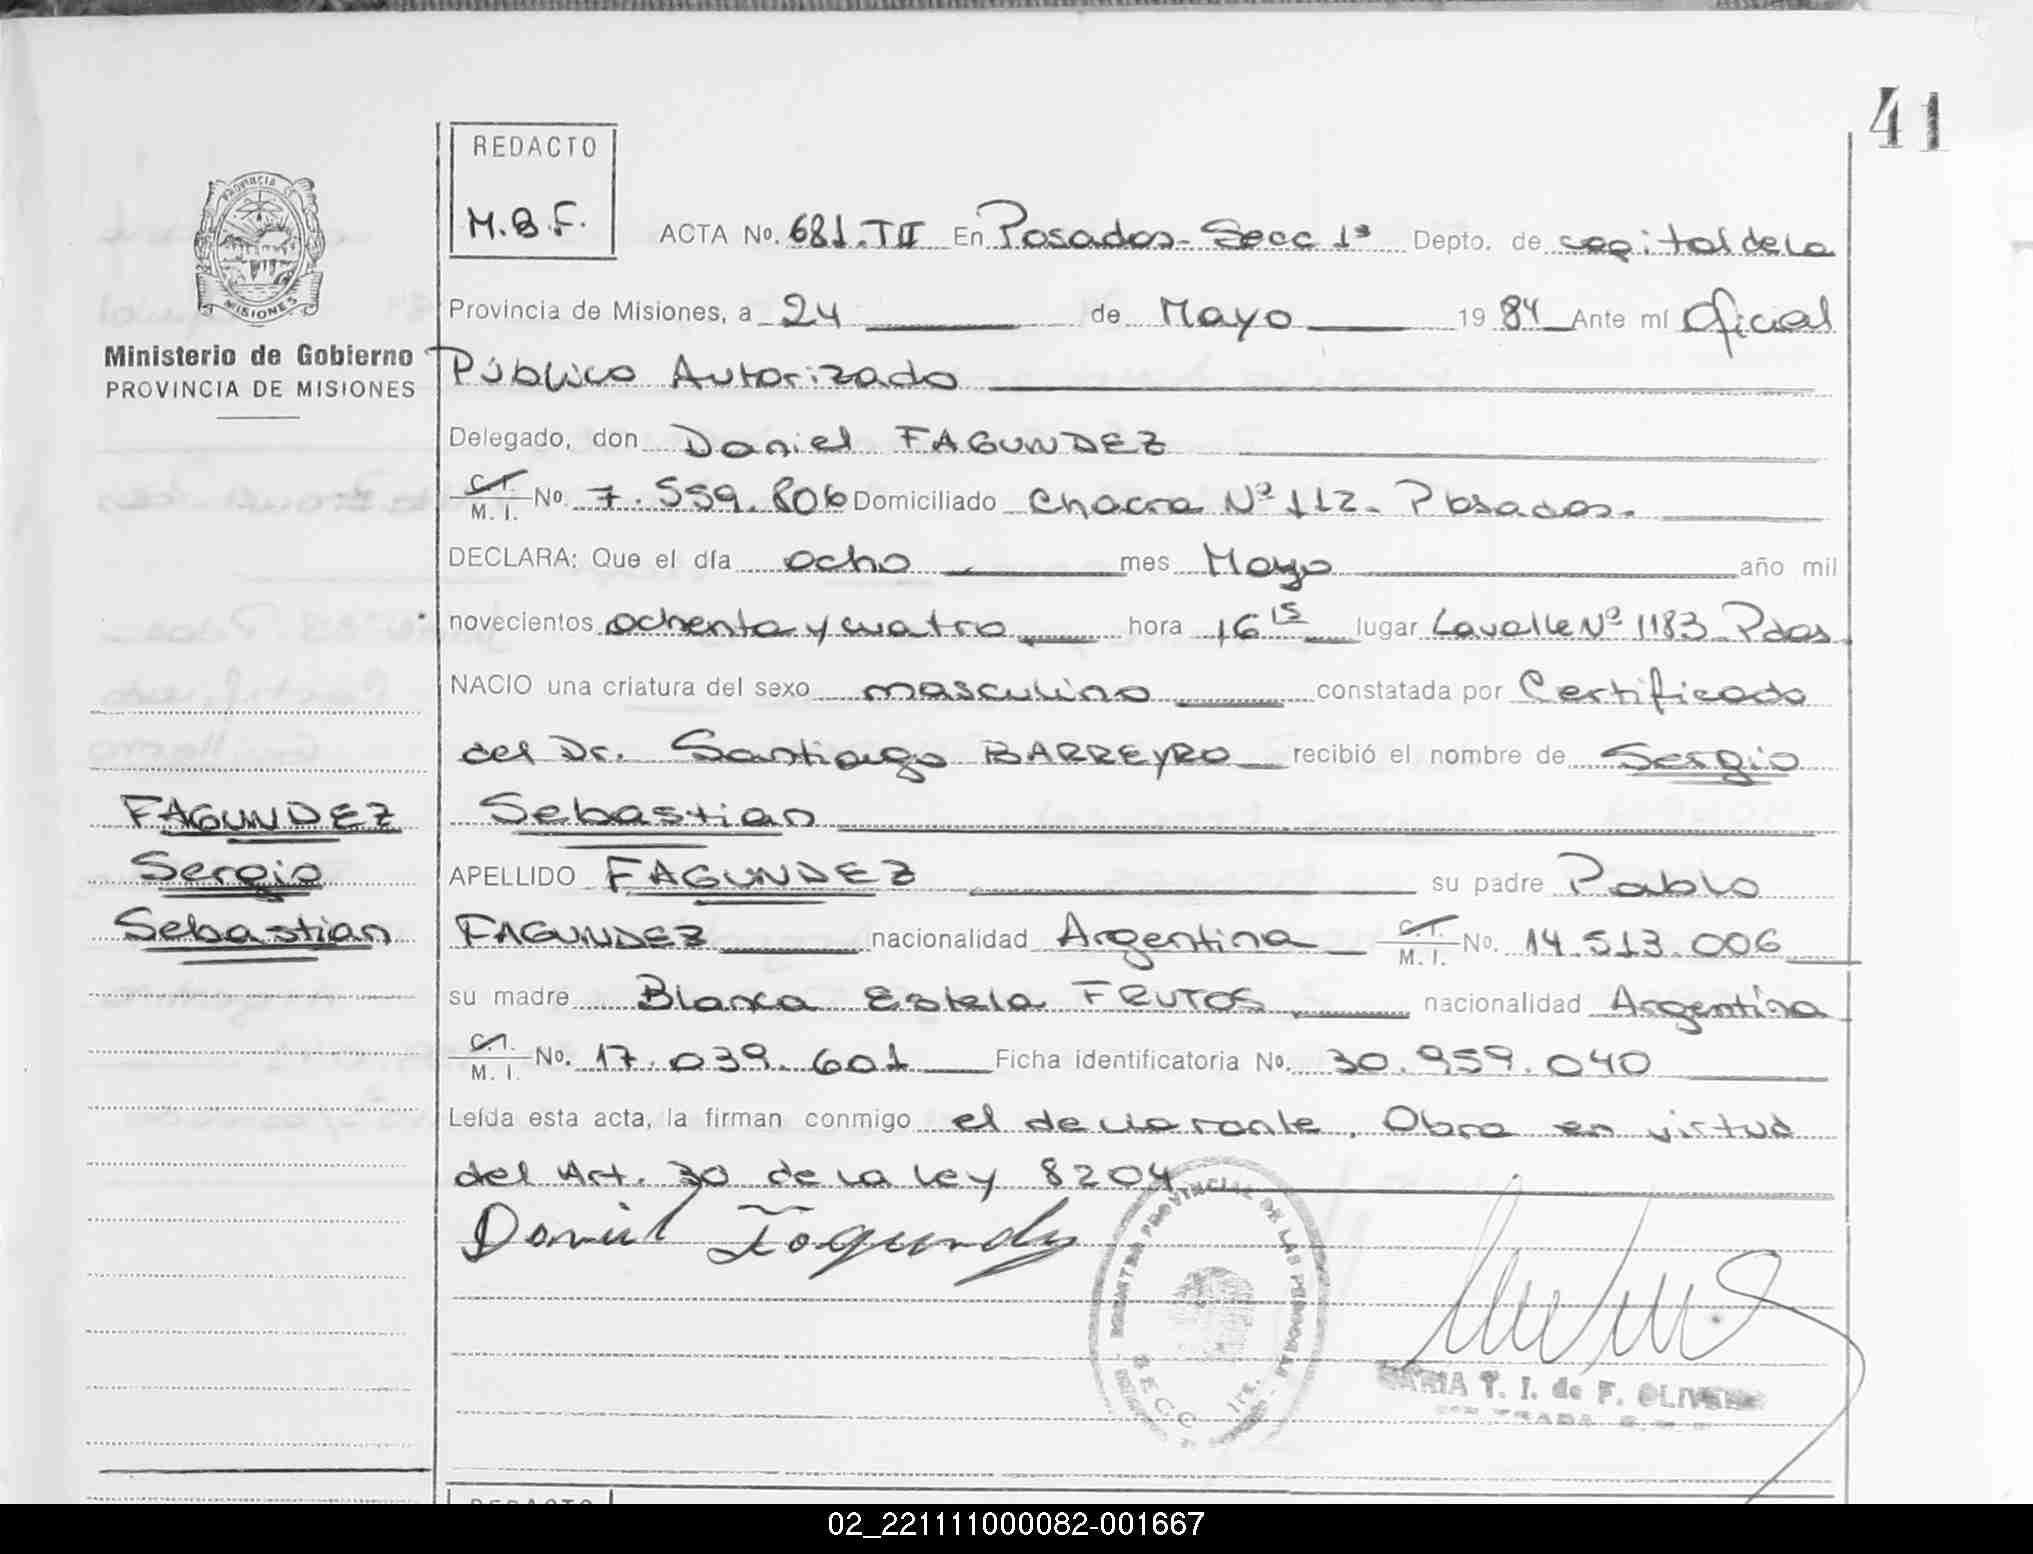 41
REDACTO
M.B.F.
ACTA No. 681. TII En Posadas - Secc 1ª Depto. de capital de la
Provincia de Misiones, a 24 de Mayo 1984 Ante mí Oficial
Público Autorizado
Delegado, don Daniel FAGUNDEZ
C.I. M. I. No. 7.559.806 Domiciliado Chacra Nº 112 - Posadas.
DECLARA: Que el día ocho mes Mayo año mil
novecientos ochenta y cuatro hora 16 15 lugar Lavalle Nº 1183 - Pdas.
NACIO una criatura del sexo masculino constatada por Certificado
del Dr. Santiago BARREYRO recibió el nombre de Sergio
Sebastian
APELLIDO FAGUNDEZ su padre Pablo
FAGUNDEZ nacionalidad Argentina C.I. M. I. No. 14.513.006
su madre Blanca Estela FRUTOS nacionalidad Argentina
C.I. M. I. No. 17.039.601 Ficha identificatoria No. 30.959.040
Leída esta acta, la firman conmigo el declarante. Obra en virtud
del Art. 30 de la Ley 8204
Daniel Fagundez
PROVINCIA
MISIONES
Ministerio de Gobierno
PROVINCIA DE MISIONES
FAGUNDEZ
Sergio
Sebastian
PROVINCIAL DE LAS PERSONAS
SECC. 1ra.
MARIA T. I. de F. OLIVERA
REDACTO
02_221111000082-001667